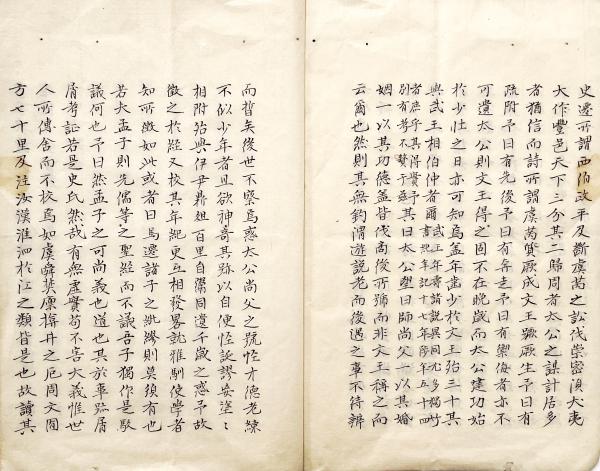 史遷所謂西伯政平及斷虞芮之訟伐崇密湏犬夷
大作豐邑天下三分其二歸周者太公之謀計居多
者猶信而詩所謂虞芮質厥成文王蹶厥生予曰有
疏附予曰有先後予曰有奔走予曰有禦侮者亦不
可遺太公則文王得之固不在晚歲而太公建功始
於少壯之日亦可知焉盖年當少於文王殆三十其
與武王相伯仲者爾
者庶乎其得實
別有考不贅于茲
其曰太公望曰師尚父一以其婚
姻一以其功德盖皆伐商後所號而非文王稱之而
云爾也然則其無釣渭遊說老而後遇之事不待辨
而晢矣後世不察焉惑太公尚父之號怪才德老練
不似少年者且欲神奇其跡以自便怪誕謬妄塗〻
相附殆與伊尹鼎俎百里自鬻同遺千歲之惑予故
徵之於經又校其年紀更互相發畧就雅馴使學者
知所徵如此或者曰馬遷諸子之紕繆則莫須有也
若夫孟子則先儒等之聖經而不議吾子獨作是駁
議何也予曰然孟子之可尚義也道也其於事跡屑
屑考証若是史氏然哉有無虛實苟不害大義惟世
人所傳舍而不校焉如虞舜焚廩揜井之厄周文囿
方七十里及注汝漢淮泗於江之類皆是也故讀其